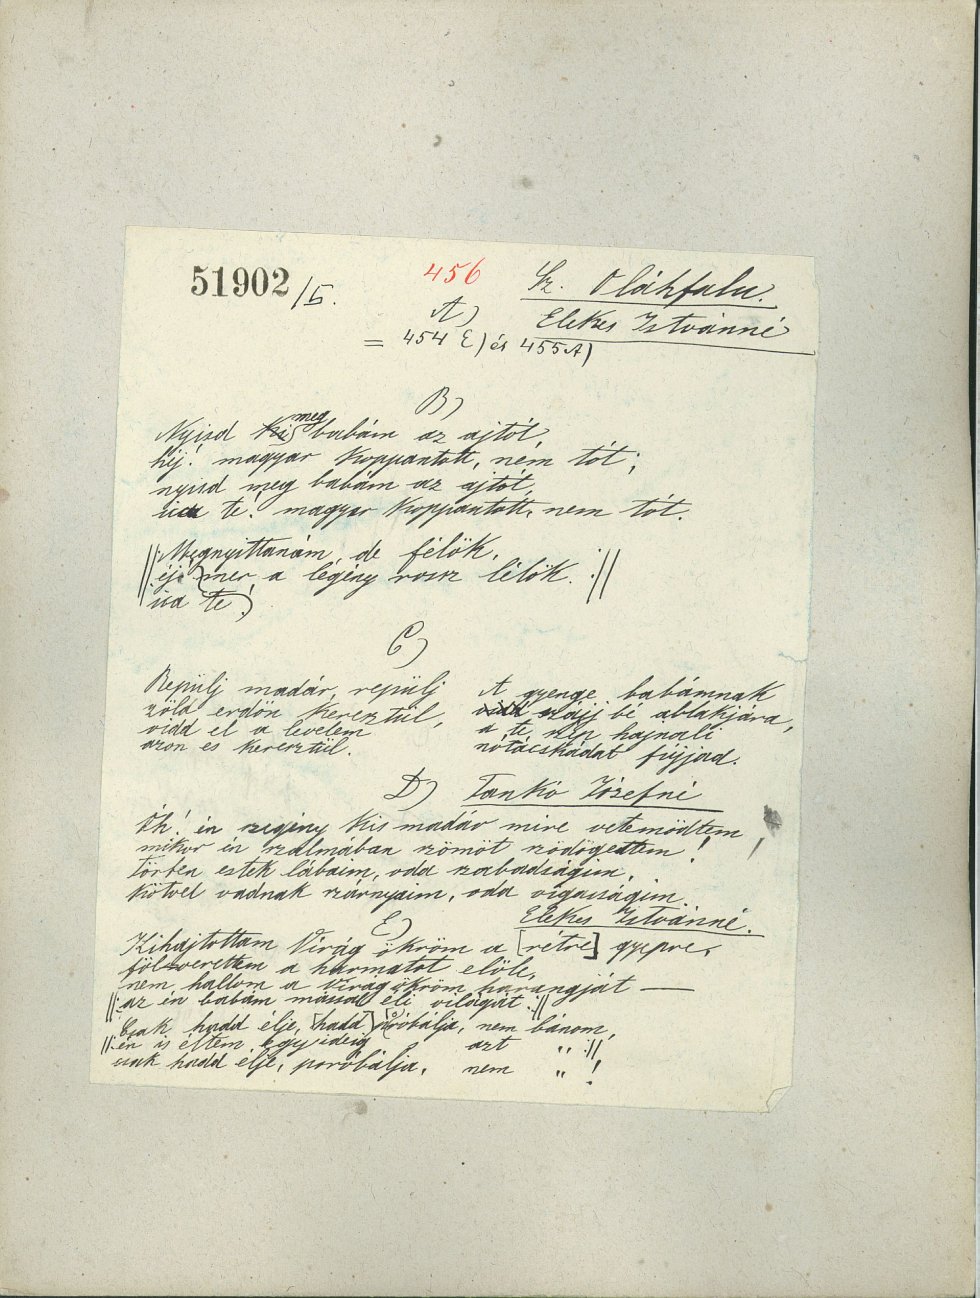 51902/5.
456
Sz. Oláhfalu.
Elekes Istvánné
A)
= 454 E) és 455 A)
B)
Nyisd ki meg babám az ajtót,
héj! magyar koppantott, nem tót;
nyisd meg babám az ajtót,
ica te! magyar koppantott, nem tót.
||: Megnyittanám, de félök,
éj! mer a légény rossz lélök. :||
ica te!
C)
Repülj madár, repülj
zöld erdőn kereztül,
vidd el a levelem
azon es keresztül.
A gyenge babámnak
szájj bé ablakjára,
a te szép hajnali
nótácskádat fújjad.
D) Tankó Józsefné
Óh! én szegény kis madár mire vetemödtem
mikor én szalmában szömöt szödögettem!
törben estek lábaim, oda szabadságim,
kötvel vadnak szárnyaim, oda vigasságim.
Elekes Istvánné.
E)
Kihajtottam Virág ökröm a [rétre] gyepre,
fölszverettem a harmatot előle,
nem hallom a Virág ökröm harangját —
||: az én babám mással éli világát :||
Csak hadd élje, [hadd] próbálja, nem bánom,
||: én is éltem egy ideig azt „ :||
csak hadd élje, paróbálja, nem „ !